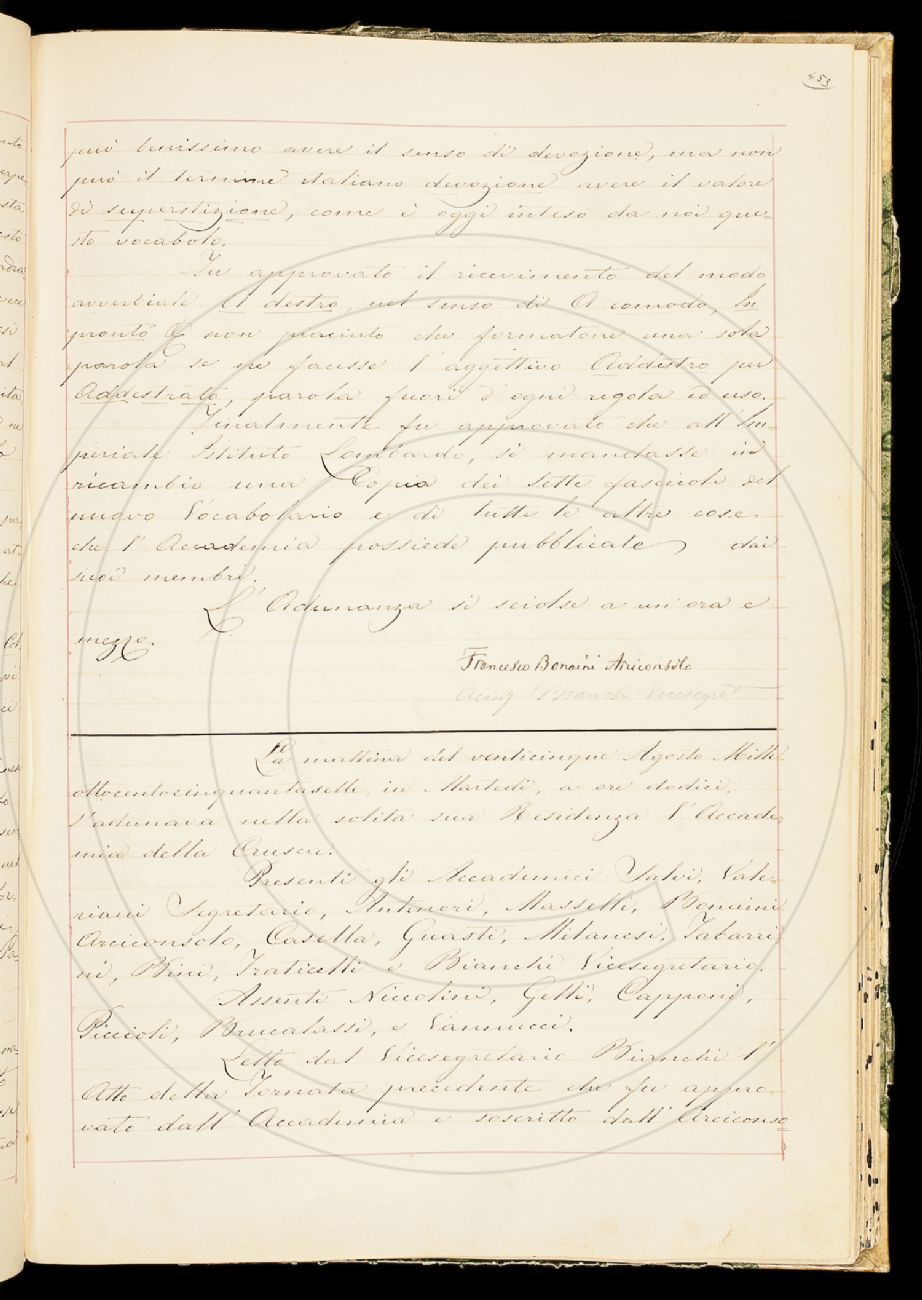 453
può benissimo avere il senso di devozione, ma non
può il termine italiano devozione avere il valore
di superstizione, come è oggi inteso da noi que-
sto vocabolo.
Fu approvato il ricevimento del modo
avverbiale A destro, nel senso di A comodo, In
pronto E non piaciuto che formatone una sola
parola se ne facesse l'aggettivo Addestro per
Addestrato, parola fuori d'ogni regola ed uso.
Finalmente fu approvato che all'Im-
periale Istituto Lombardo, si mandasse in
ricambio una Copia dei sette fascicoli del
nuovo Vocabolario e di tutte le altre cose
che l'Accademia possiede pubblicate dai
suoi membri.
L'Adunanza si sciolse a un'ora e
mezzo.
Francesco Bonaini Arciconsolo
Bianchi Vicesegret
La mattina del venticinque Agosto Mille
ottocentocinquantasette, in Martedì, a ore dodici,
s'adunava nella solita sua Residenza l'Accade-
mia della Crusca.
Presenti gli Accademici Salvi, Vale-
riani Segretario, Antinori, Masselli, Bonaini
Arciconsolo, Casella, Guasti, Milanesi, Tabarri-
ni, Bini, Fraticelli e Bianchi Vicesegretario.
Assenti Niccolini, Gelli, Capponi,
Piccioli, Brucalassi, e Vannucci.
Letto dal Vicesegretario Bianchi l'
Atto della Tornata precedente che fu appro-
vato dall'Accademia e soscritto dall'Arciconso